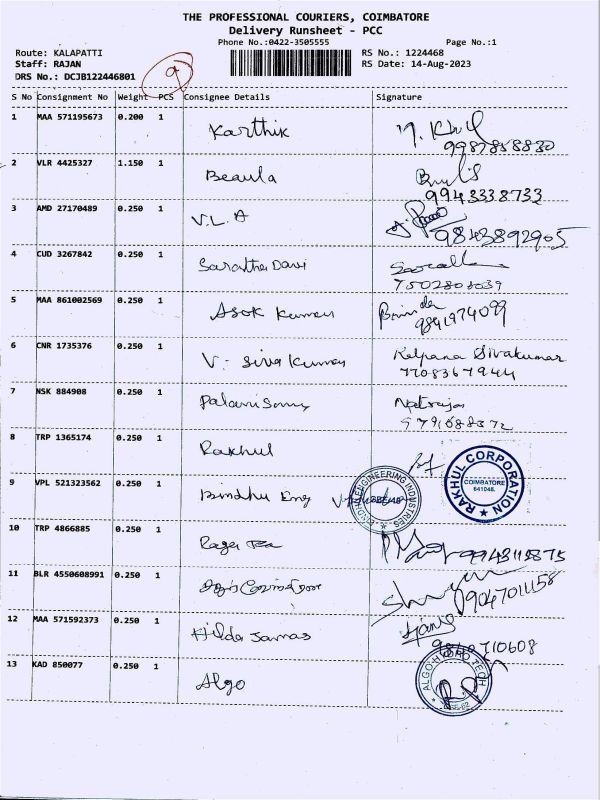 THE PROFESSIONAL COURIERS, COIMBATORE
Delivery Runsheet - PCC
Phone No.:0422-3505555 Page No.:1
Route: KALAPATTI RS No.: 1224468
Staff: RAJAN RS Date: 14-Aug-2023
DRS No.: DCJB122446801
S No Consignment No Weight PCS Consignee Details Signature
1 MAA 571195673 0.200 1 Karthik
2 VLR 4425327 1.150 1 Beaula
9943338733
3 AMD 27170489 0.250 1 V.L.A
9843892905
4 CUD 3267842 0.250 1
5 MAA 861002569 0.250 1 Asok Kumar
6 CNR 1735376 0.250 1 V. Siva Kumar Kalpana Sivakumar
7708367944
7 NSK 884908 0.250 1 Palani Samy
8 TRP 1365174 0.250 1 Rakhul
RAKHUL CORPORATION
COIMBATORE
641048.
9 VPL 521323562 0.250 1 Bindhu Eng
ENGINEERING INDUSTRIES
10 TRP 4866885 0.250 1
11 BLR 4550608991 0.250 1
9047011158
12 MAA 571592373 0.250 1 Hilda James
13 KAD 850077 0.250 1 Algo